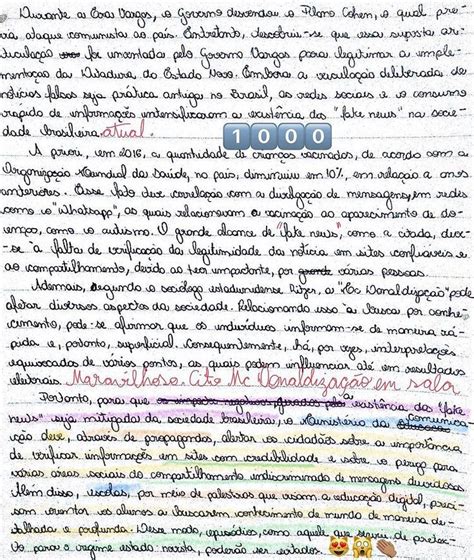 Durante a Era Vargas, o Governo desvendou o Plano Cohen, o qual pre-
via ataque comunista ao país. Entretanto, descobriu-se que essa suposta ar-
ticulação foi inventada pelo Governo Vargas para legitimar a imple-
mentação da Ditadura do Estado Novo. Embora a veiculação deliberada de
notícias falsas seja prática antiga no Brasil, as redes sociais e o consumo
rápido de informação intensificaram a existência das "fake news" na socie-
dade brasileira atual.
1000
A priori, em 2016, a quantidade de crianças vacinadas, de acordo com a
Organização Mundial da Saúde, no país, diminuiu em 10%, em relação a anos
anteriores. Esse fato deve correlação com a divulgação de mensagens, em redes
como o "Whatsapp", as quais relacionavam a vacinação ao aparecimento de do-
enças, como o autismo. O grande alcance de "fake news", como a citada, deve-
-se à falta de verificação da legitimidade da notícia em sites confiáveis e
ao compartilhamento, devido ao teor importante, por várias pessoas.
Ademais, segundo o sociólogo estadunidense Ritzer, a "Mc Donaldização" pode
afetar diversos aspectos da sociedade. Relacionando isso à busca por conhe-
cimento, pode-se afirmar que os indivíduos informam-se de maneira rá-
pida e, portanto, superficial. Consequentemente, há, por vezes, interpretações
equivocadas de vários pontos, as quais podem influenciar até em resultados
eleitorais. Maravilhoso. Cito Mc Donaldização em sala
Portanto, para que a existência das "fake
news" seja mitigada da sociedade brasileira, o Ministério da Comunica-
ção deve, através de propagandas, alertar os cidadãos sobre a importância
de verificar informações em sites com credibilidade e sobre o perigo para
várias áreas sociais do compartilhamento indiscriminado de mensagens duvidosas.
Além disso, escolas, por meio de palestras que visam a educação digital, preci-
sam orientar os alunos a buscarem conhecimento de mundo de maneira de-
talhada e profunda. Desse modo, episódios, como aquele que serviu de pretex-
to para o regime estado novista, poderão ser evitados.